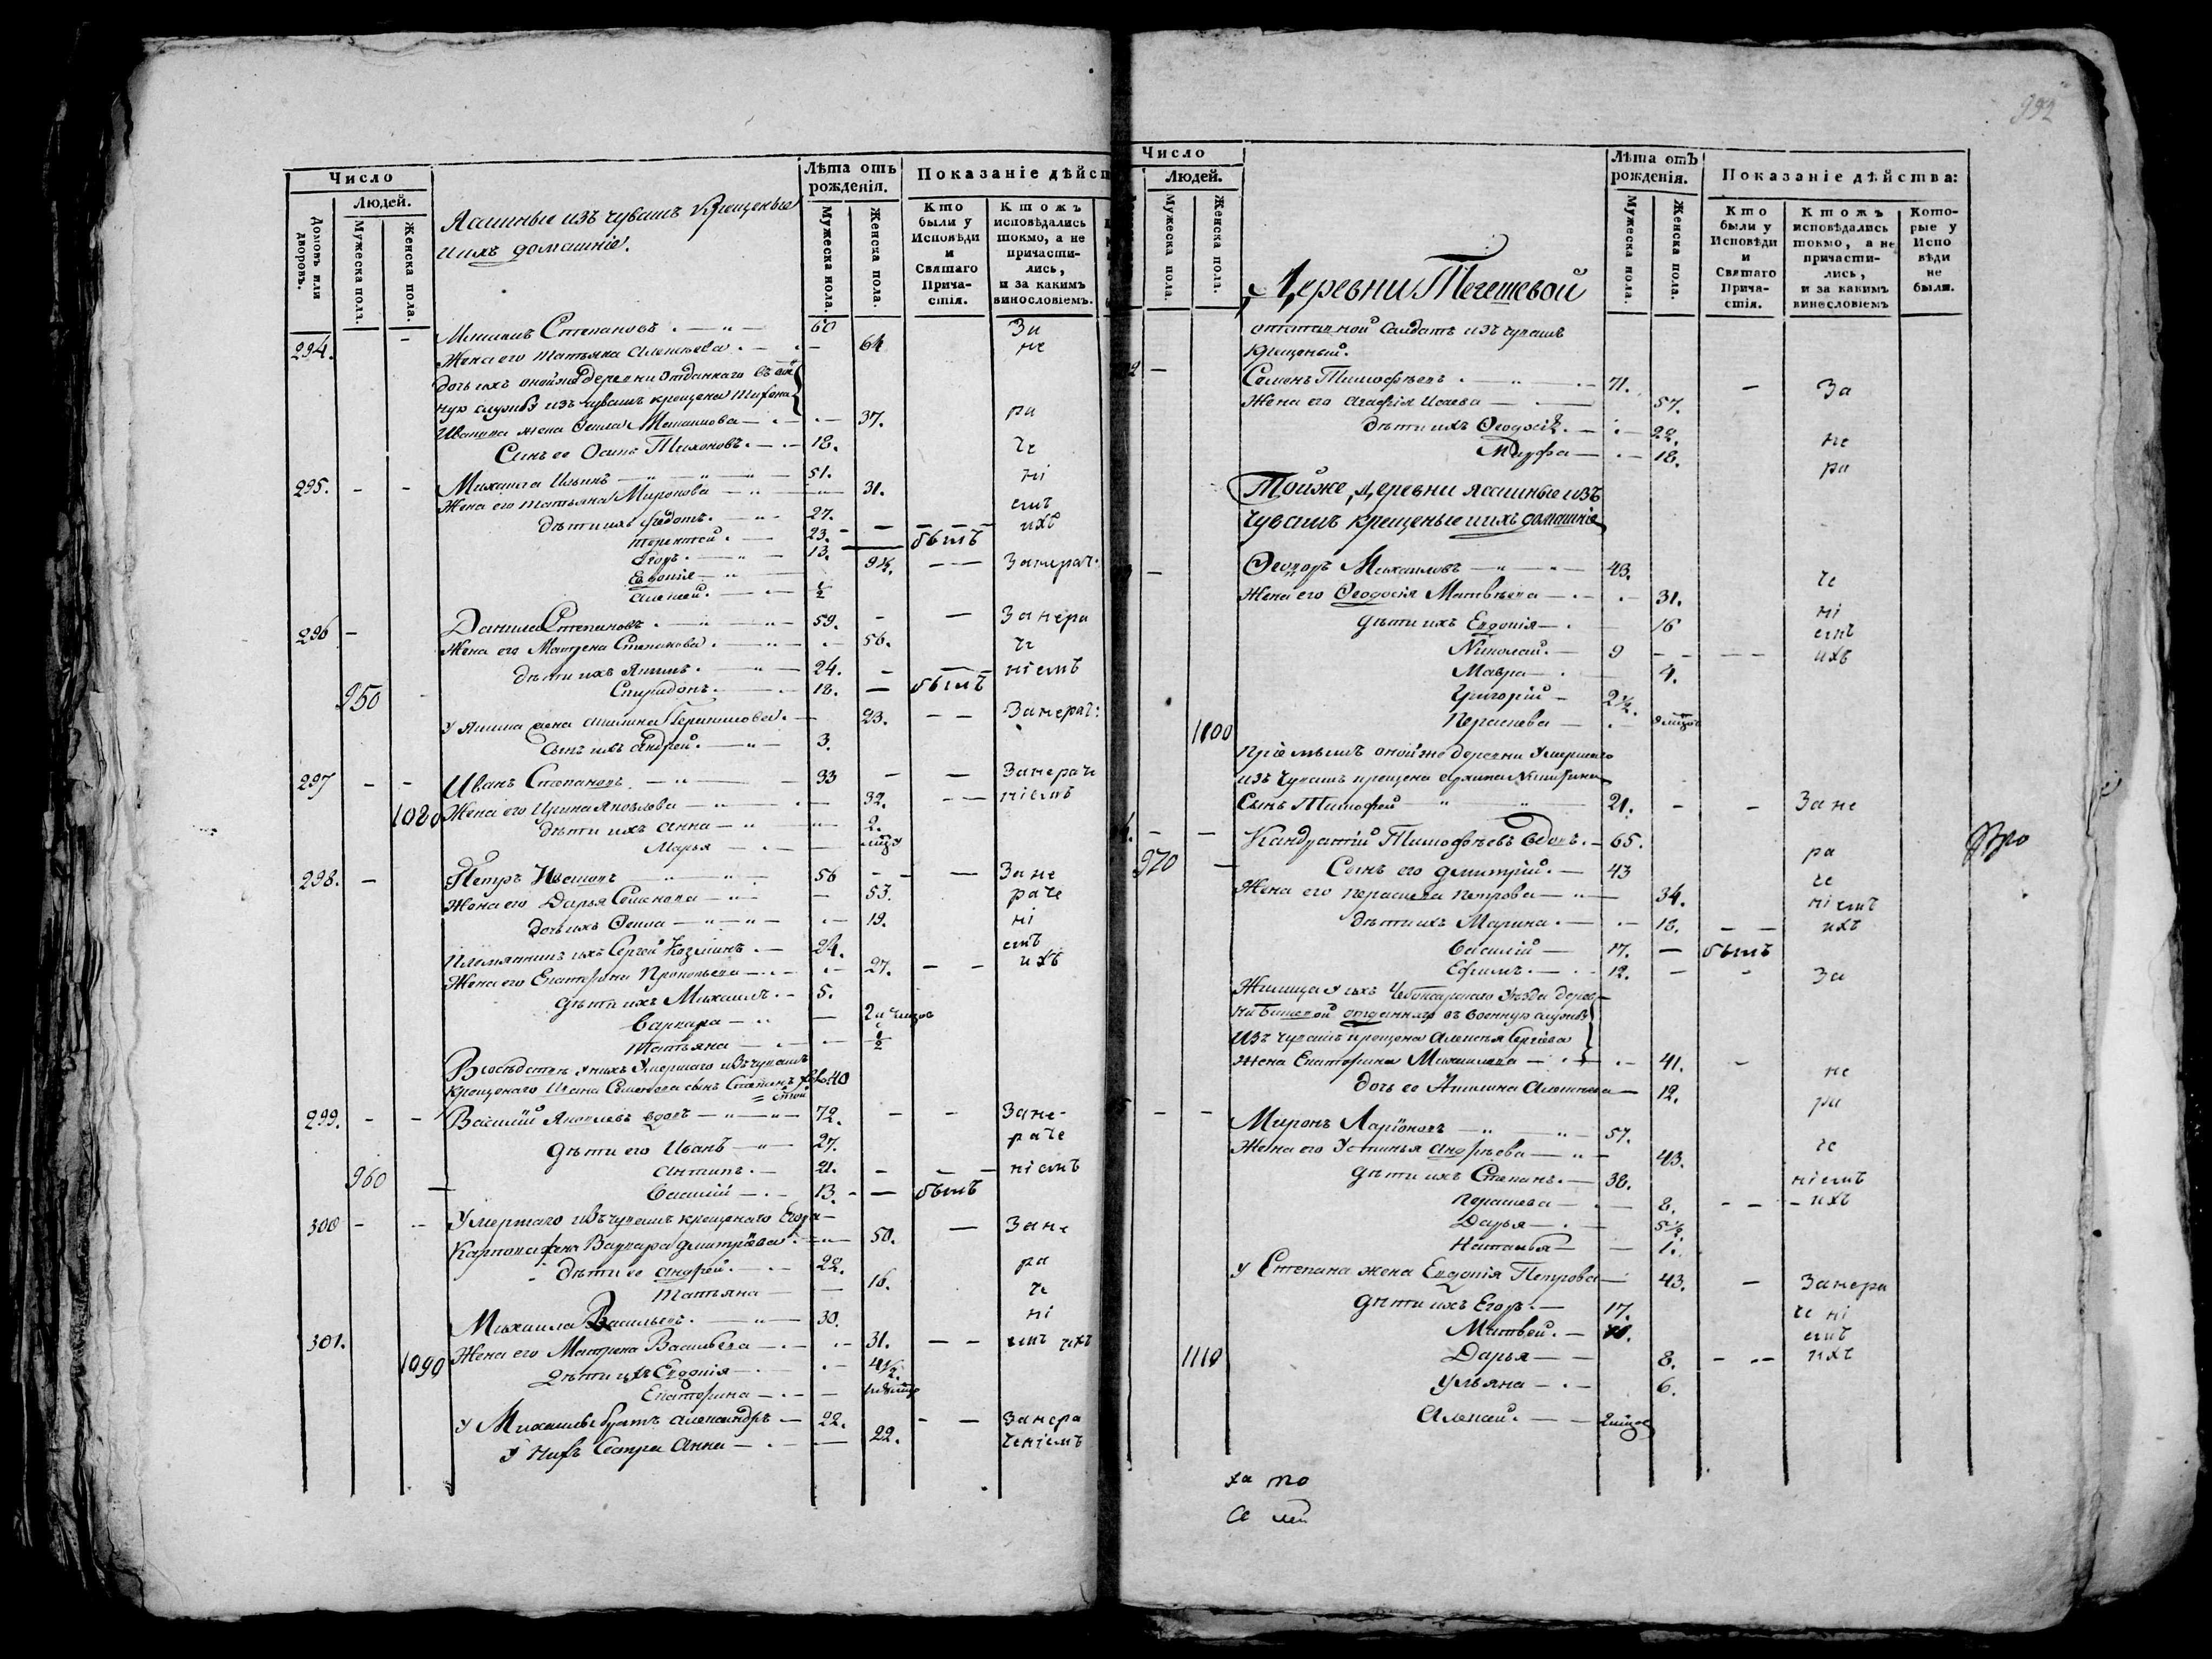 Число
Людей.
Домовъ или дворовъ.
Мужеска пола.
Женска пола.
Ясашные изъ чувашъ крещеные
и ихъ домашніе.
Лѣта отъ рожденія.
Мужеска пола.
Женска пола.
Показаніе дѣйст
Кто были у Исповѣди и Святаго Причастія.
Ктожъ исповѣдались токмо, а не причастились, и за какимъ винословіемъ.
Степановъ 60 За
294. Жена его Татьяна Алексѣева 64 не
дочь ихъ оной же деревни отданнаго въ
ную службу изъ чувашъ крещена Тихона
Иванова жена 37. ра
Сынъ ее Осипъ Тихоновъ 18. че
295. Михаила Ильинъ 51. ні
Жена его Татьяна Миронова 31. емъ
дѣти ихъ Федотъ 27. ихъ
Терентей 23. былъ
Егоръ 13.
Евдокія Занерач:
Алексей 1/2
296 Данила Степановъ 59. Занера
Жена его Матрена Степанова 56. че
дѣти ихъ Якимъ 24. ніемъ
950 Спиридонъ 18. былъ
У Якима жена Акилина 23. Занерач:
Сынъ ихъ Андрей 3.
297 Иванъ Степановъ 33 Занераче
1080 Жена его Ирина Яковлева 32. ніемъ
дѣти ихъ Анна 2.
Марья
298. Петръ 56 Зане
Жена его Дарья Семенова 53. раче
дочь ихъ 19. ні
Племянникъ ихъ Сергей Козминъ 24. емъ
Жена его Екатерина Прокопьева 27. ихъ
дѣти ихъ Михаилъ 5.
Варвара 2
Татьяна 1/2
у нихъ умершаго изъ чувашъ
крещенаго Семенова сынъ Степанъ 40
299. Василій Яковлевъ вдовъ 72. Зане-
дѣти его Иванъ 27. раче
Антипъ 21. ніемъ
960 Василій 13. былъ
300 Умершаго изъ чувашъ крещенаго Егора
Карпова жена Варвара Дмитріева 50. Зане
дѣти ее Андрей 22. ра
Татьяна 16. че
Михаила Васильевъ 30. ні
301. Жена его Матрена Васильева 31. емъ ихъ
1090 дѣти ихъ Евдокія 4 1/2
Екатерина
У Михаилы братъ Александръ 22. Занера
У нихъ сестра Анна 22. ченіемъ
992
Число
Людей.
Мужеска пола.
Женска пола.
Лѣта отЪ рожденія.
Мужеска пола.
Женска пола.
Показаніе дѣйства:
Кто были у Исповѣди и Святаго Причастія.
Ктожъ исповѣдались токмо, а не причастились, и за какимъ винословіемъ
Которые у Исповѣди не были.
Деревни Тегешевой
отставной салдатъ изъ чувашъ
крещеный.
Семенъ Тимофѣевъ 71. За
Жена его Агафія Исаева 57.
дѣти ихъ 22. не
Марфа 18. ра
Тойже деревни ясашные изъ
чувашъ крещеные и ихъ домашніе
Ѳеодоръ Михаиловъ 43. че
Жена его Ѳеодосія Матвѣева 31. ні
дѣти ихъ Евдокія 16 емъ
Николай 9 ихъ
Мавра 4.
Григорій 2 1/2
1100 Параскева
Пріемышъ оной же деревни умершаго
изъ чувашъ крещена
Сынъ Тимофей 21. Зане
Кандратій Тимофѣевъ вдовъ 65. ра
970 Сынъ его Дмитрій 43 че
Жена его Параскева Петрова 34. ніемъ
дѣти ихъ Марина 18. ихъ
Василій 17. былъ
Ефимъ 12. За
Жилица у нихъ Чебоксарскаго уѣзда дерев-
ни отданнаго въ военную службу
изъ чувашъ крещена Алексѣя Сергѣева
жена Екатерина Михаилова 41. не
дочь ее Акилина Алексѣева 12. ра
Миронъ Ларіоновъ 57. че
Жена его Устинья Андрѣева 43. ніемъ
дѣти ихъ Степанъ 38. ихъ
Параскева 8.
Дарья 5 1/2
Наталья 1.
У Степана жена Евдокія Петрова 43. Занера
дѣти ихъ Егоръ 17. че ні
Матвей 10. емъ
1110 Дарья 8. ихъ
Ульяна 6.
Алексей